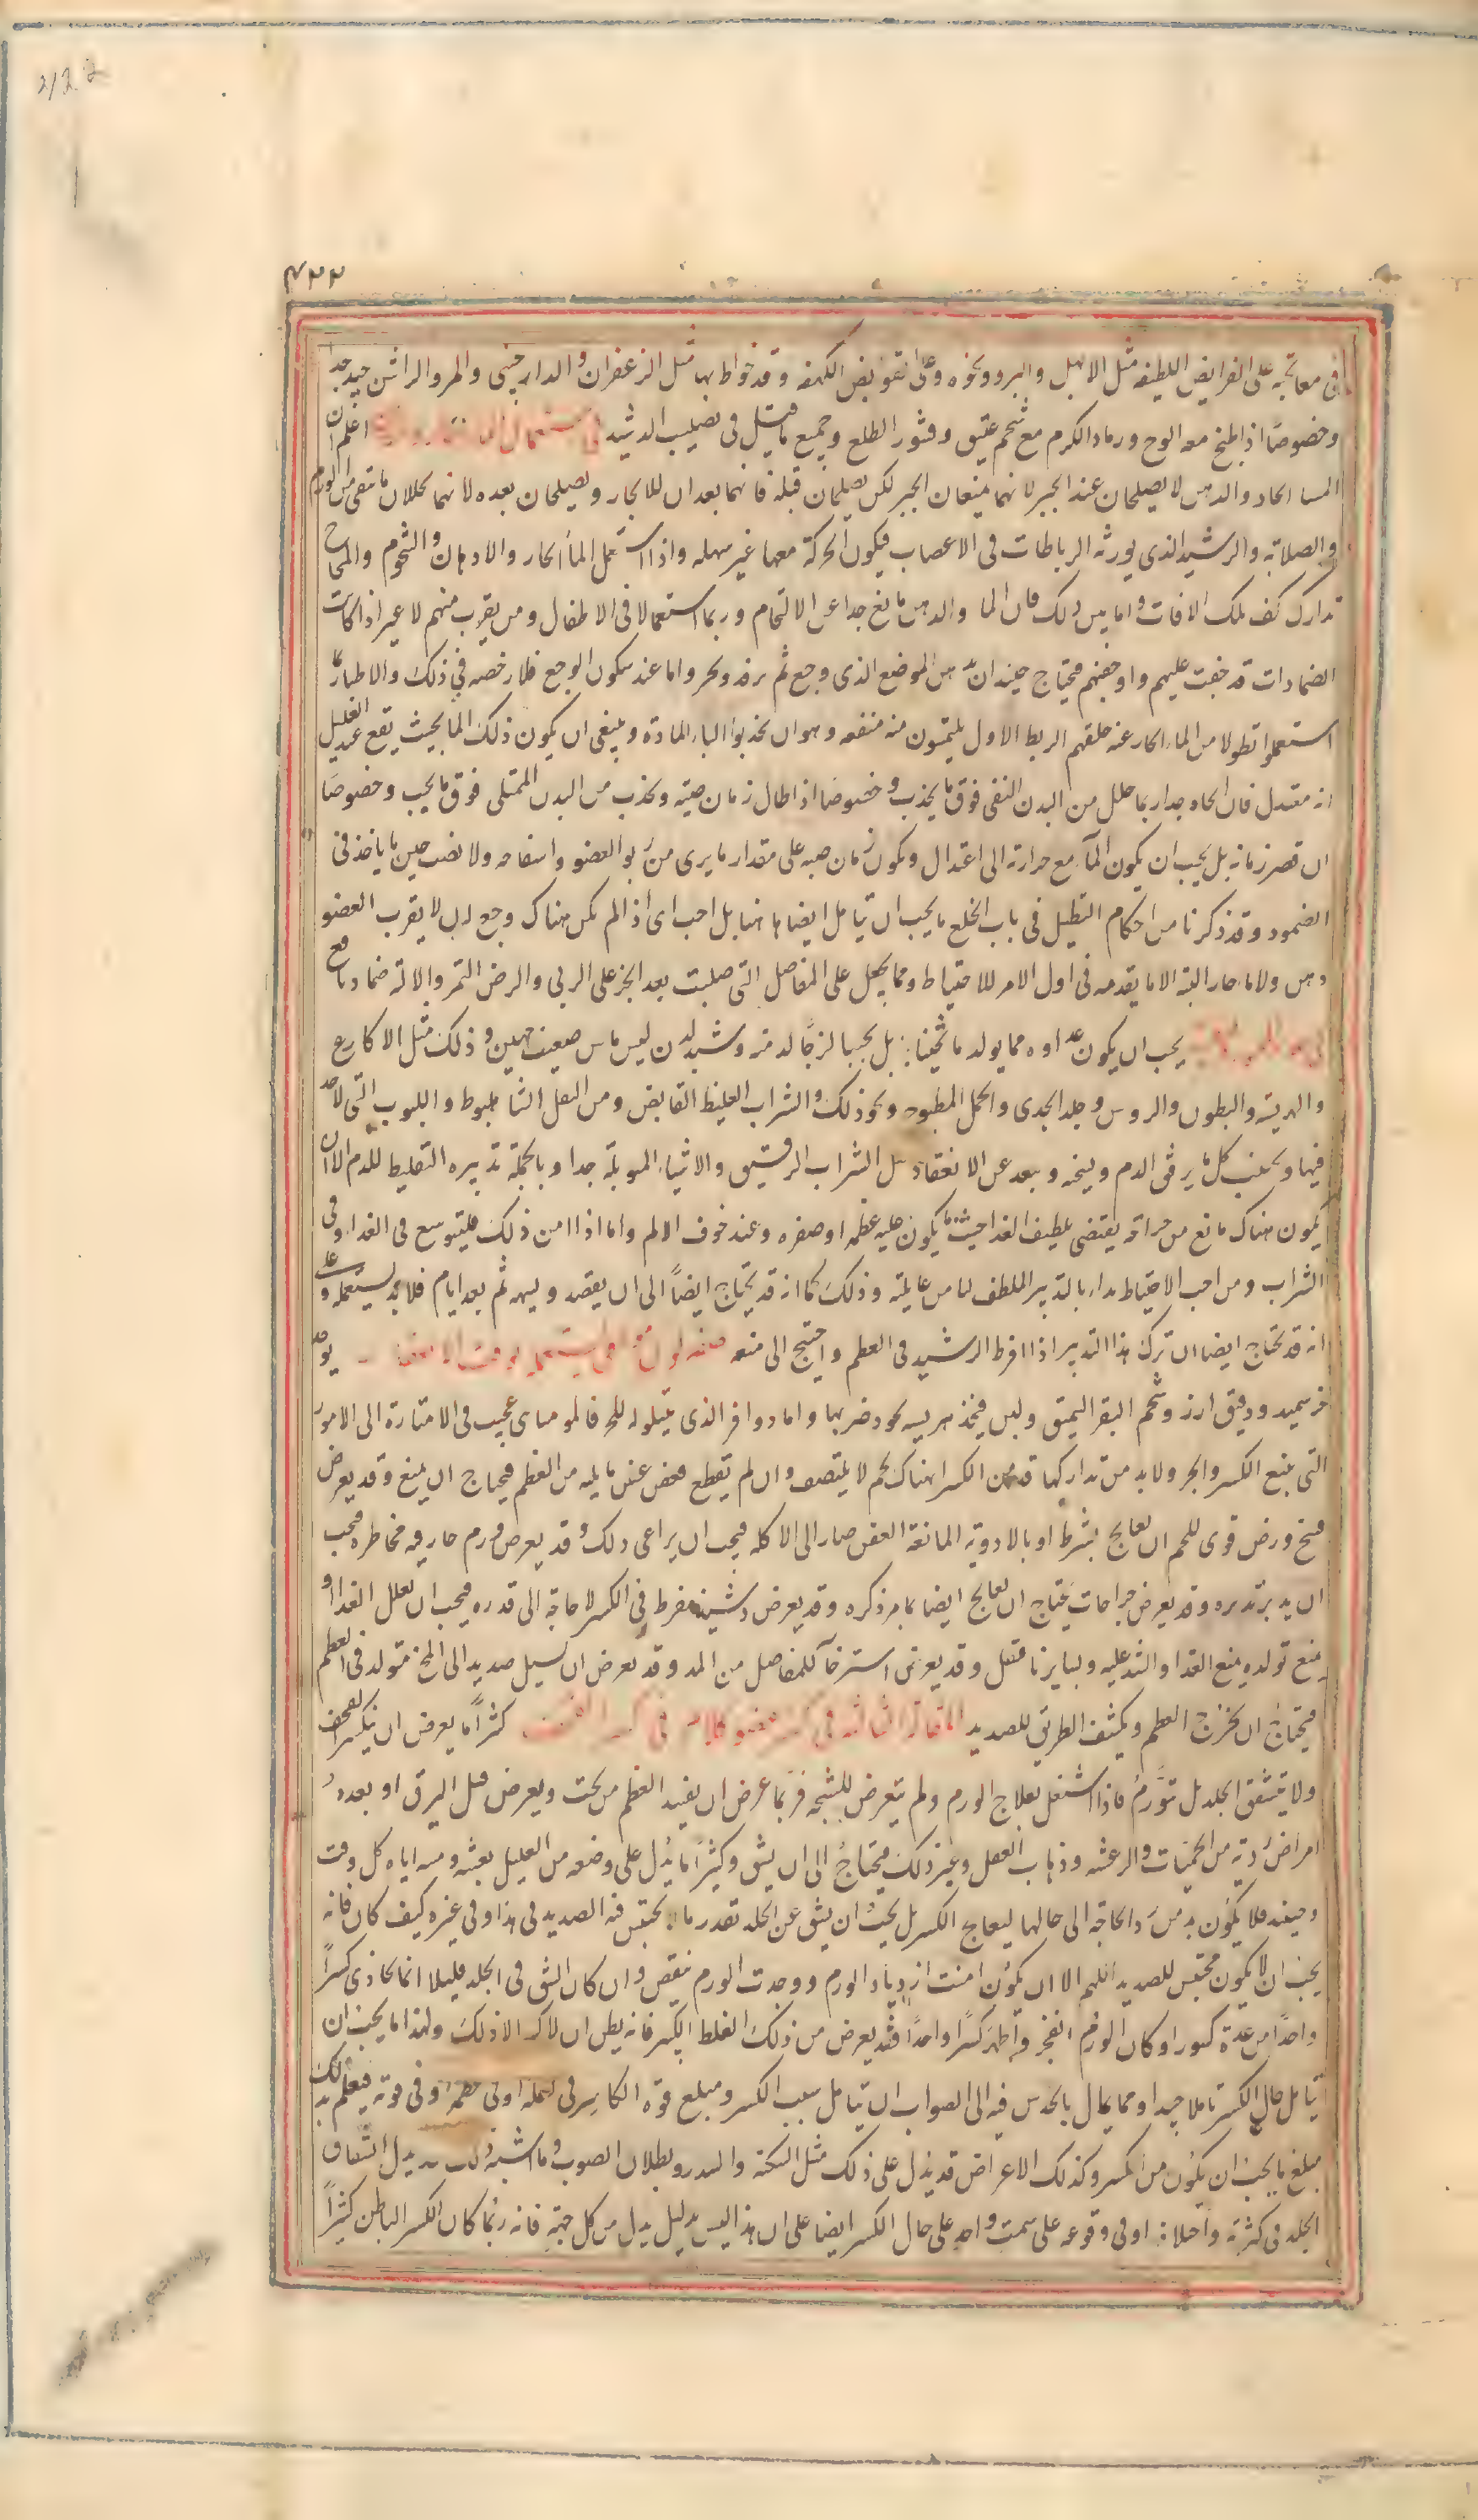 ٤٢٢
فى معالجته على القوابض اللطيفه مثل الابهل والسرو ونحوه وعلى القوابض الكهنه وقد يخلط بها مثل الزعفران والدارچينى والمر والراتنج جيد جدا
وخصوصًا اذا طبخ معه الوج ورماد الكرم مع شحم عتيق وقشور الطلع وجميع ما قيل فى تصليب الدشبد اعلم ان
الماء الحار والدهن لا يصلحان عند الجبر لانهما يمنعان الجبر لكن يصلحان قبله فانهما يعدان للانجبار ويصلحان بعده لانهما يحللان ما تبقى من الورم
والصلابة والدشبد الذى يورثه الرباطات فى الاعصاب فيكون الحركة معها غير سهله واذا استعمل الماء الحار والادهان والشحوم والمخاخ
تدارك تلك الافات واما بين ذلك فان الماء والدهن مانع جدا عن الالتحام وربما استعملا فى الاطفال ومن يقرب منهم لا غير اذا كانت
الضمادات قد جفت عليهم واوجعتهم فيحتاج حينئذ ان يدهن الموضع الذى وجع ثم يرفد ويجبر واما عند سكون الوجع فلا رخصه فى ذلك والاطباء ربما
استعملوا نطولا من الماء الحار عند حلهم الربط الاول يلتمسون منه منفعه وهو ان يجذبوا اليه المادة وينبغى ان يكون ذلك الماء بحيث يقع عند العليل
انه معتدل فان الحار جدا ربما حلل من البدن النقى فوق ما يجذب وخصوصا اذا طال زمان صبه ويجذب من البدن الممتلى فوق ما يجب وخصوصًا
ان قصر زمانه بل يجب ان يكون الماء مع حرارته الى اعتدال ويكون زمان صبه على مقدار ما يرى من ربو العضو وانتفاخه ولا يصب حين ما ياخذ فى
الضمور وقد ذكرنا من احكام التنطيل فى باب الخلع ما يجب ان تتامل ايضا هاهنا بل احب اى اذا لم يكن هناك وجع ان لا يقرب العضو
دهن ولا ماء حار البتة الا ما يقدمه فى اول الامر للاحتياط ومما يجعل على المفاصل التى صلبت بعد الجبر على الربى والرض التمر والالية ضمادا مع
يجب ان يكون غذاوه مما يولد دما ثخينا بل يجب لزجًا لدنه دشبد لدن ليس يابس ضعيف مهين وذلك مثل الاكارع
والهريسه والبطون والروس وجلد الجدى والحمل المطبوخ ونحو ذلك والشراب الغليظ القابض ومن النقل الشاهبلوط واللبوب التى لا حدة
فيها ويجنب كل ما يرقق الدم ويسخنه ويبعده عن الانعقاد مثل الشراب الرقيق والاشياء المتوبلة جدا وبالجملة تدبيره التغليظ للدم الا ان
يكون هناك مانع من جراحة يقتضى تلطيف الغذاء حيث ما يكون عليه عظمه او صغره وعند خوف الالم واما اذا امن ذلك فليتوسع فى الغداء وفى
الشراب ومن احب الاحتياط بداء بالتدبير الملطف ليامن غايلته وذلك كما انه قد يحتاج ايضًا الى ان يفصد ويسهل ثم بعد ايام فلا يستعمله وعلى
انه قد يحتاج ايضا ان يترك هذا التدبير اذا افرط الدشبد فى العظم واحتيج الى منعه يوخذ
خبز سميد ودقيق ارز وشحم البقر السمين ولبن فيتخذ هريسه يجود ضربها واما دواء
التى يمنع الكسر والجبر ولا بد من تداركها قد يكون مع الكسر هناك لحم لا يلتصق وان لم يقطع عفن ما يليه من العظم فيحتاج ان يمنع وقد يعرض
فسخ ورض قوى للحم ان لم يعالج بشرط او بالادوية المانعة العفن صار الى الاكله فيجب ان يراعى ذلك وقد يعرض ورم حار فيه مخاطره فيجب
ان يدبر تدبيره وقد يعرض جراحات يحتاج ان تعالج ايضا بما مر ذكره وقد يعرض دشبد مفرط فى الكسر لا حاجة الى قدره فيجب ان يقلل الغداء او
يمنع تولده بمنع الغداء والشد عليه ولسايرنا فنقل وقد يعرض استرخاء للمفاصل من المد وقد يعرض ان يسيل صديد الى المخ متولد فى العظم
فيحتاج ان يخرج العظم ويكشف الطريق للصديد المقالة الثالثه فى كسر عضو عضو كثيرًا ما يعرض ان ينكسر القحف
ولا ينشق الجلد بل يتورم فاذا اشتغل بعلاج الورم ولم يتعرض للشجة فربما عرض ان يفسد العظم من تحت ويعرض قبل البرء او بعده
امراض ردية من الحميات والرعشه وذهاب العقل وغير ذلك فيحتاج الى ان يشق وكثيرًا ما يدل على وضعه من العليل بعبثه ومسه اياه كل وقت
وحينئذ فلا يكون بد من رد الحاجة الى حالها ليعالج الكسر بل يجب ان يشق عن الجلد بقدر ما لا يحتبس فيه الصديد فى هذا وفى غيره كيف كان فانه
يجب ان لا يكون محتبس للصديد اللهم الا ان يكون امنت ازدياد الورم ووجدت الورم ينقص وان كان الشق فى الجلد قليلا انما يحاذى كسرًا
واحدًا من عدة كسور او كان الورم انفجر واظهر كسرًا واحدًا فقد يعرض من ذلك الغلط الكبير فانه يظن ان لا كسر الا ذلك ولهذا ما يجب ان
يتامل حال الكسر تاملا جيدا ومما ينال بالحدس فيه الى الصواب ان يتامل سبب الكسر ومبلغ قوة الكاسر فى ثقله او فى عظمه او فى قوته فيعلم بذلك
مبلغ ما يجب ان يكون من الكسر وكذلك الاعراض قد يدل على ذلك مثل السكتة والسدر وبطلان الصوت وما اشبه ذلك وقد يدل انشقاق
الجلد فى كثرته واختلافه او فى وقوعه على سمت واحد على حال الكسر ايضا على ان هذا ليس بدليل يدل من كل جهة فانه ربما كان الكسر الباطن كثيرًا